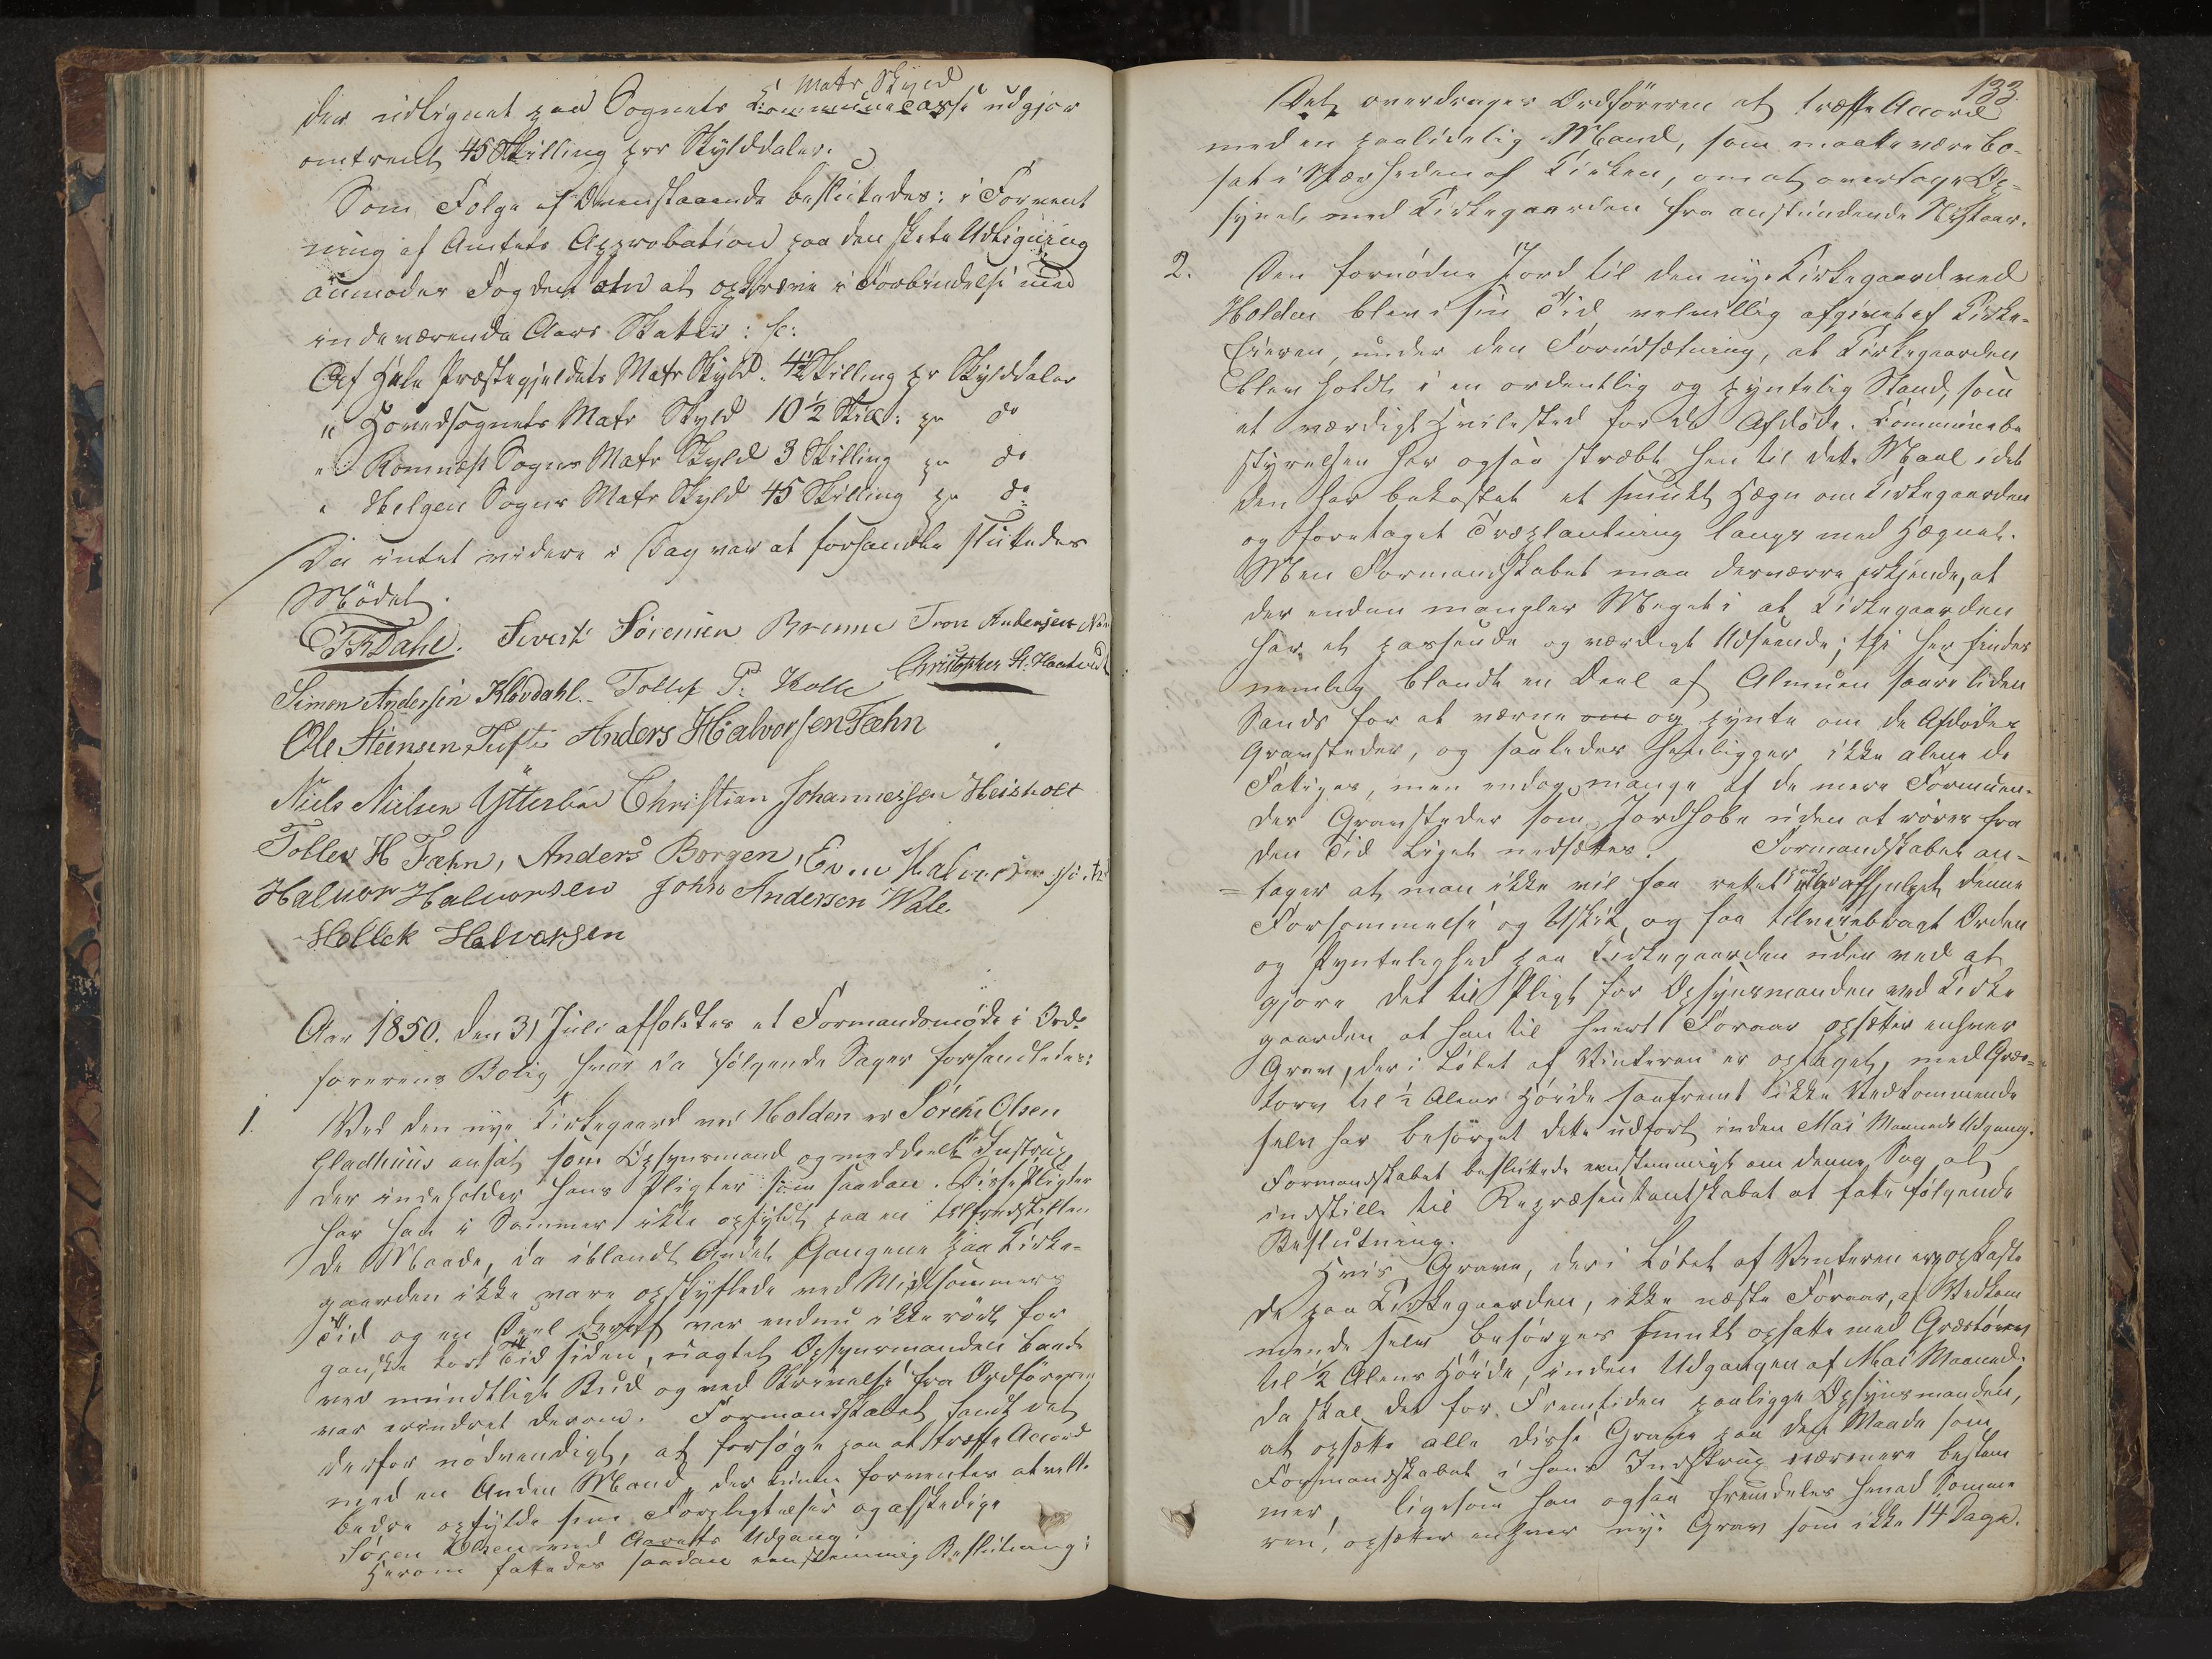 Matr Skyld
der udlignet paa Sognets Communecasse udgjør
omtrent 45 Skilling per Skylddaler.
Som Følge af Ovenstaaende besluttedes: i Forvent
ning af Amtets Approbation paa den skete Udligning
anmodes Fogden om at opkræve i Forbindelse med
indeværende Aars Skatter:
Af Hele Præstegjeldets Matr Skyld. 4½ Skilling pr Skylddaler
" Hovedsognets Matr Skyld 10½ Skill: pr do
" Romnæs Sogns Matr Skyld 3 Skilling pr do
" Helgen Sogns Matr Skyld 45 Skilling pr do
Da intet videre i Dag var at forhandle sluttedes
Mødet.
Dahl. Sivert Sørensen Brenne Tron Andersen
Simon Andersen Klovdahl. Tollef P. Kolle Christopher H. Haatvedt
Ole Steensen Tufte Anders Halvorsen Fæhn
Niels Nielsen Ytterbøe Christian Johannessen Heisholt
Tollev H Fæhn, Anders Borgen, Even Halvorsen
Halvor Halvorsen John Andersen Wale
Hellek Halvorsen
Aar 1850. den 31 Juli afholdtes et Formandsmøde i Ord-
førerens Bolig hvor da følgende Sager forhandledes:
1. Ved den nye Kirkegaard ved Holden er Søren Olsen
Gladhuus ansat som Opsynsmand og meddeelt Instrux
der indeholder hans Pligter som saadan. Disse Pligter
har han i Sommer ikke opfyldt paa en tilfredsstillen
de Maade, da iblandt Andet Gangene paa Kirke-
gaarden ikke vare opskyflede ved Midtsommers
Tid og en Deel deraf var endnu ikke rørt for
ganske kort Tid siden, uagtet Opsynsmanden baade
ved mundtligt Bud og ved Skrivelse fra Ordføreren
var erindret derom. Formandskabet fandt det
derfor nødvendigt, at forsøge paa at træffe Accord
med en Anden Mand, der kunde forventes at ville
bedre opfylde sine Forpligtelser og afskedige
Søren Olsen ved Aarets Udgang.
Herom fattedes saadan eenstemmig Beslutning:
133.
Det overdrages Ordføreren at træffe Accord
med en paalidelig Mand, som maatte være bo-
sat i Nærheden af Kirken, om at overtage Op-
synet med Kirkegaarden fra anstundende Nytaar.
2. Den fornødne Jord til den nye Kirkegaard ved
Holden blev i sin Tid velvillig afgivet af Kirke-
Eieren, under den Forudsætning, at Kirkegaarden
blev holdt i en ordentlig og pyntelig Stand, som
et værdigt Hvilested for de Afdøde. Communebe
styrelsen har ogsaa stræbt hen til dette Maal idet
den har bekostet et smukt Hegn om Kirkegaarden
og foretaget Træplantning langs med Hegnet.
Men Formandskabet maa desværre erkjende, at
der endnu mangler Meget i at Kirkegaarden
har et passende og værdigt Udseende; thi her findes
nemlig blandt en Deel af Almuen saare liden
Sands for at værne om og pynte om de Afdødes
Gravsteder, og saaledes henligger ikke alene de
Fattiges, men endog mange af de mere Formuen-
des Gravsteder som Jordhobe uden at røres fra
den Tid Liget nedsættes. Formandskabet an-
tager at man ikke vil faa rettet og afhjulpet denne
Forsømmelse og Uskik, og faa tilveiebragt Orden
og Pyntelighed paa Kirkegaarden uden ved at
gjøre det til Pligt for Opsynsmanden ved Kirke
gaarden at han til hvert Foraar opsætter enhver
Grav, der i Løbet af Vinteren er opkastet, med Græs-
torv til ½ Alens Høide saafremt ikke Vedkommende
selv har besørget dette udført inden Mai Maaneds Udgang.
Formandskabet besluttede eenstemmigt om denne Sag at
indstille til Repræsentantskabet at fatte følgende
Beslutning.
Hvis Grave, der i Løbet af Vinteren ere opkaste
de paa Kirkegaarden, ikke næste Foraar, af Vedkom
mende selv besørges smukt opsatte med Græstørv
til ½ Alens Høide, inden Udgangen af Mai Maaned;
da skal det for Fremtiden paaligge Opsynsmanden,
at opsætte alle disse Grave paa den Maade som
Formandskabet i hans Indstrux nærmere bestem
mer, ligesom han ogsaa fremdeles henad Somme
ren, opsætter enhver nye Grav som ikke 14 Dage.